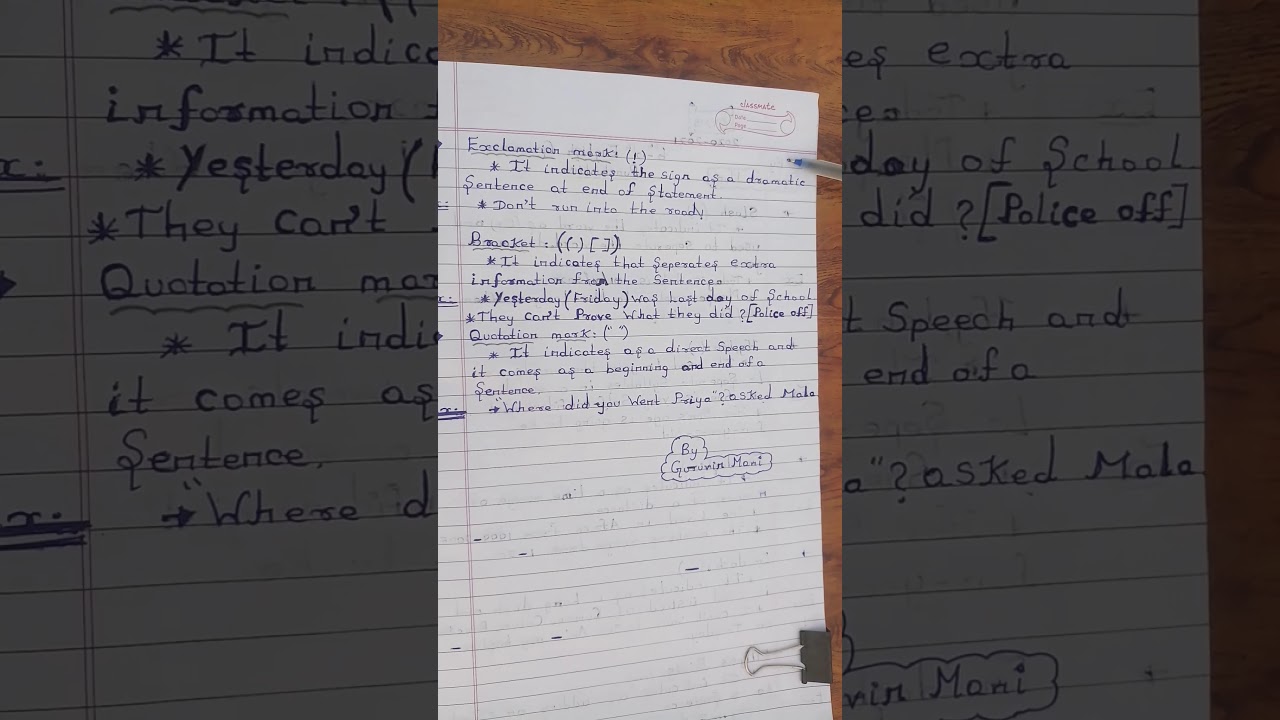 classmate
Date
Page
Exclamation mark: (!)
* It indicates the sign as a dramatic
Sentence at end of Statement.
* Don't run into the road
Bracket: (( ) [ ])
* It indicates that Seperates extra
information from the Sentences
x: * Yesterday (Friday) was Last day of School
* They can't Prove what they did ? [Police off]
Quotation mark: (" ")
* It indicates as a direct Speech and
it comes as a beginning and end of a
Sentence.
x: → "Where did you Went Priya"? asked Mala
By
Guruvin Mani